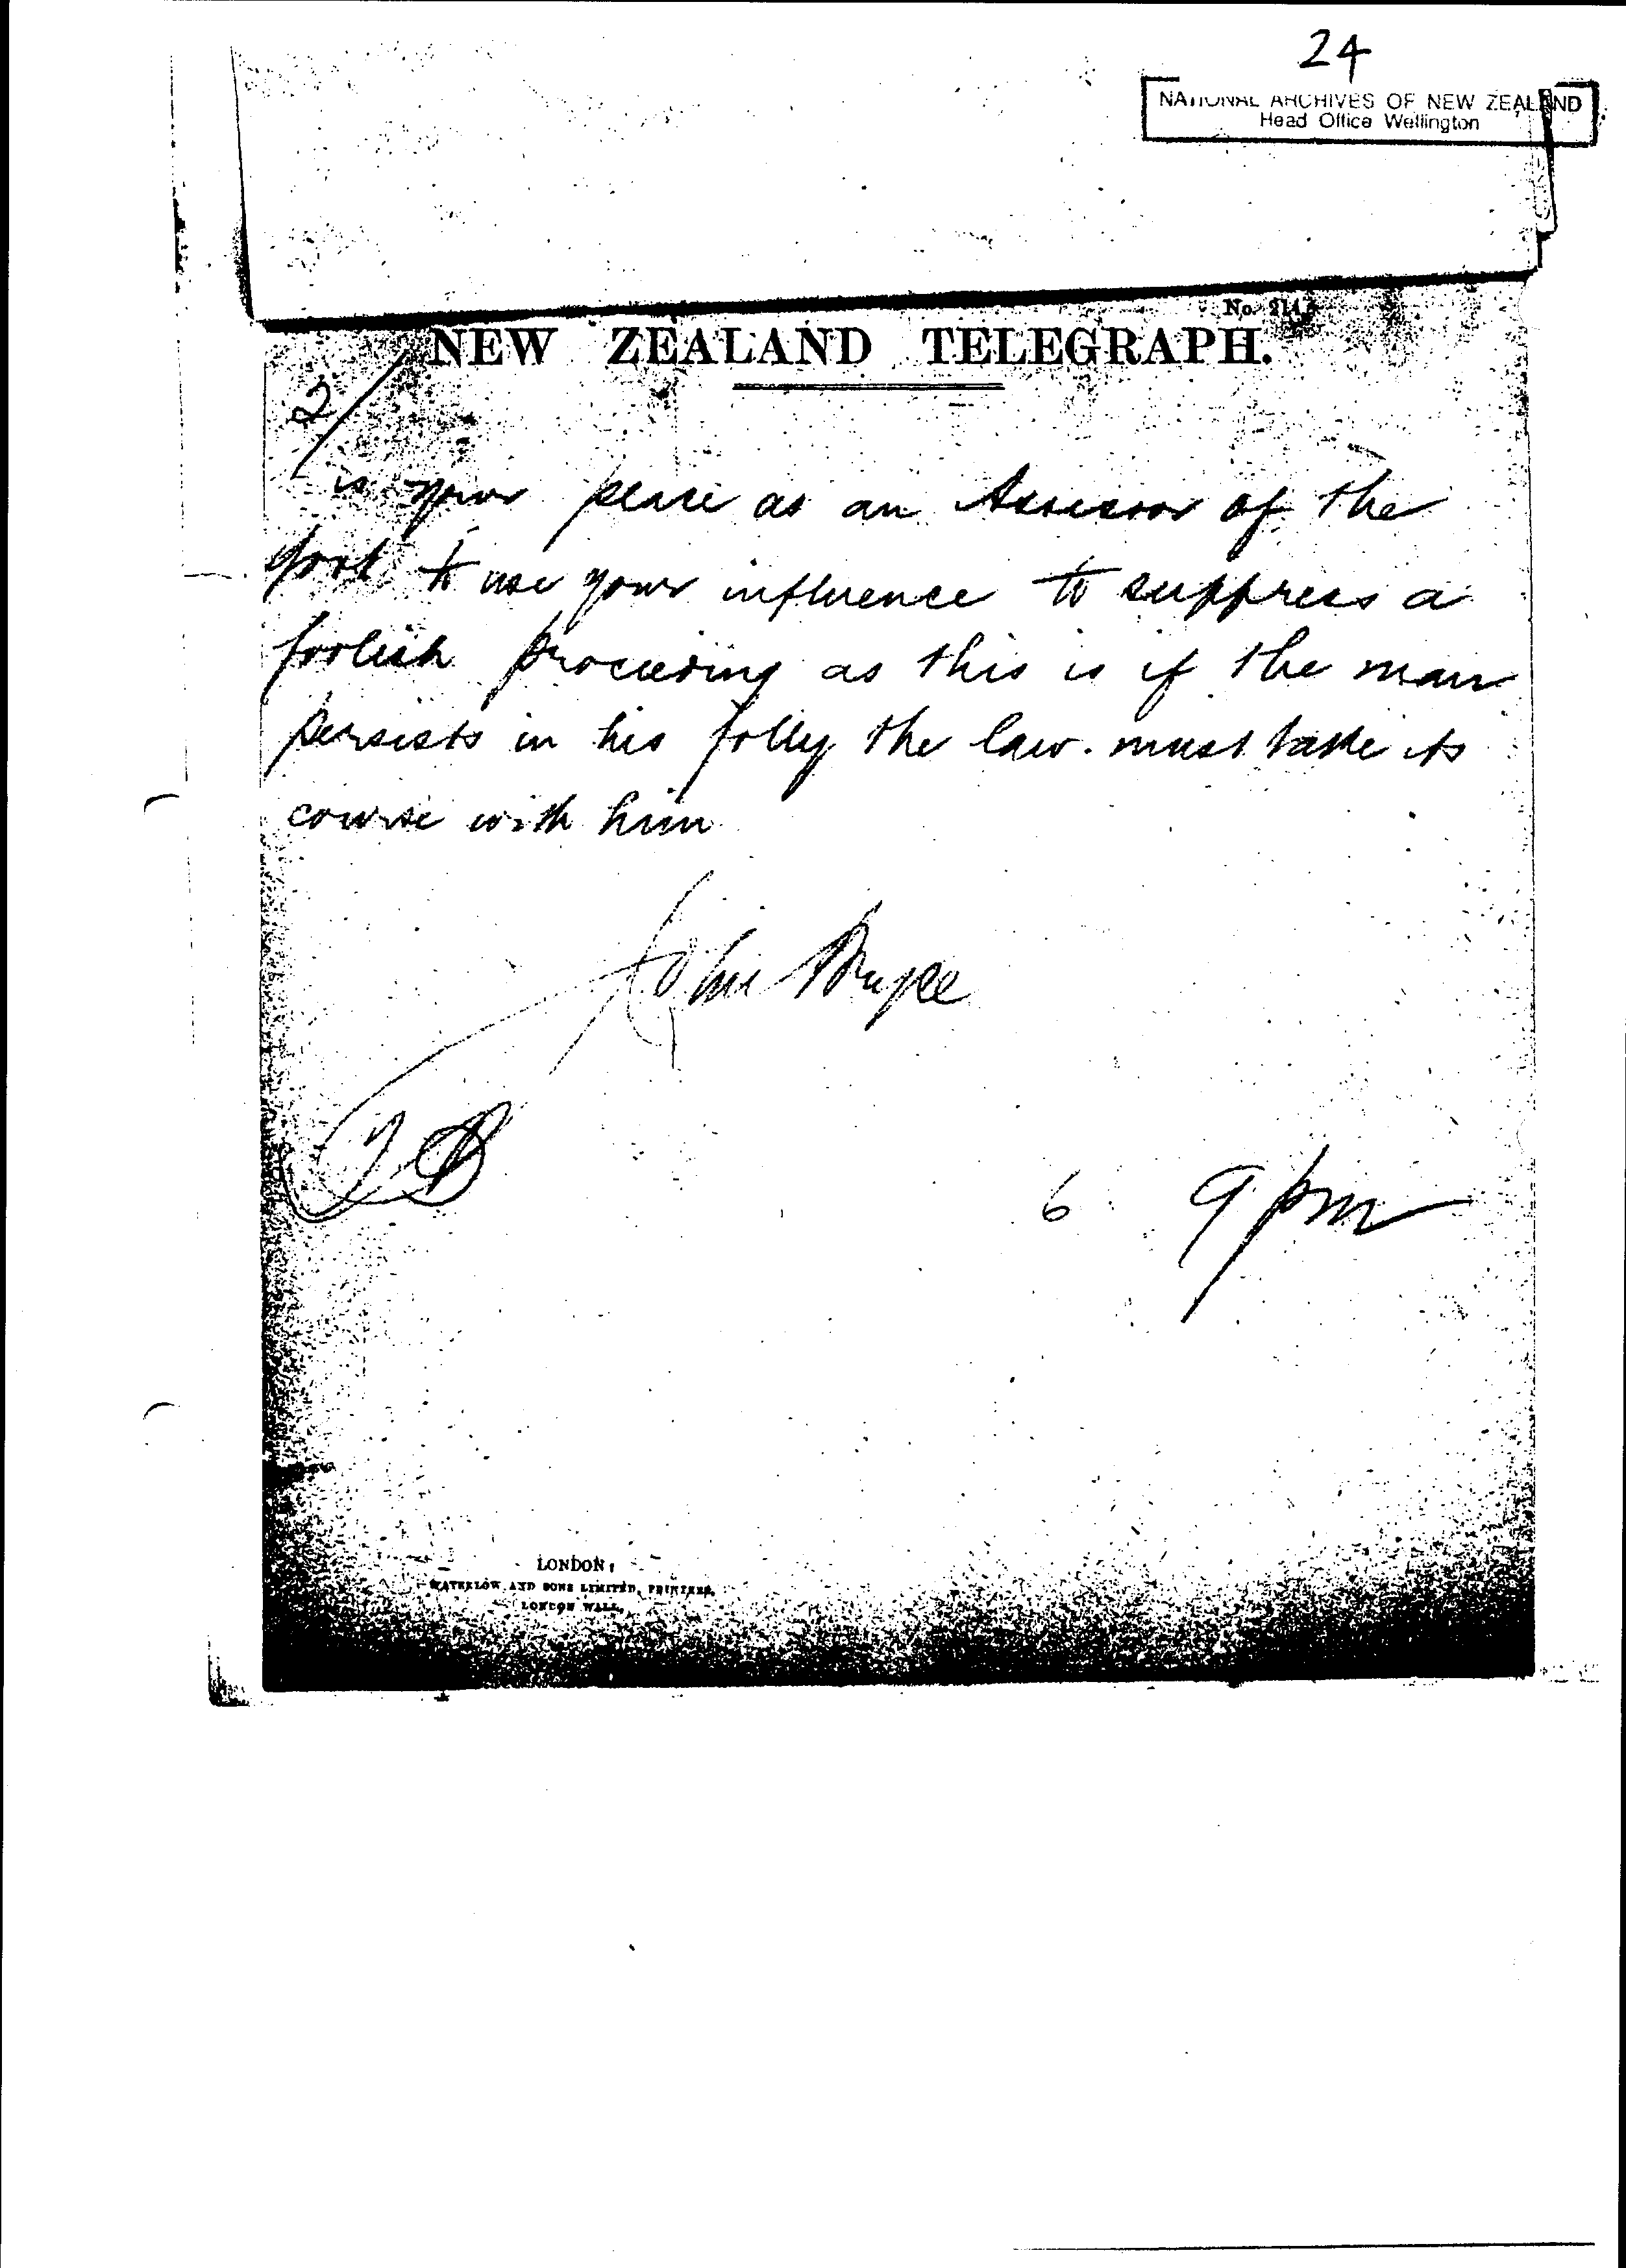 24
NATIONAL ARCHIVES OF NEW ZEALAND
Head Office Wellington
NEW ZEALAND TELEGRAPH.
2/
is your place as an Assessor of the
Govt to use your influence to suppress a
foolish proceeding as this is if the man
persists in his folly the law must take its
course with him
John Bryce
6 9 pm
LONDON:
WATERLOW AND SONS LIMITED, PRINTERS,
LONDON WALL.